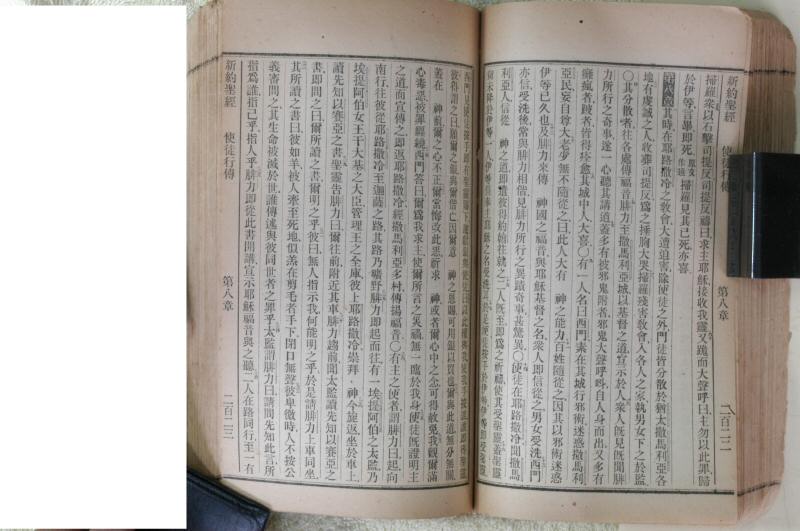 新約聖經 使徒行傳 第八章 二百二二
掃羅衆以石擊司提反司提反禱曰求主耶穌接收我靈又跪而大聲呼曰主勿以此罪歸
於伊等言畢卽死 原文作睡 掃羅見其已死亦喜
第八章 其時在耶路撒冷之敎會大遭迫害除使徒之外門徒皆分散於猶太撒馬利亞各
地有虔誠之人收葬司提反爲之捶胸大哭掃羅殘害敎會入各人之家執男女下之於監
○其分散者往各處傳福音腓力至撒馬利亞城以基督之道宣示於人衆人旣見旣聞腓
力所行之奇事遂一心聽其講道蓋多有被邪鬼附者邪鬼大聲呼呌自人身而出又多有
癱瘋者跛者皆得痊愈其城中人大喜○有一人名曰西門素在其城行邪術迷惑撒馬利
亞民妄自尊大老少無不隨從之曰此人大有 神之能力百姓隨從之因其以邪術迷惑
伊等已久也及腓力來傳 神國之福音與耶穌基督之名衆人卽信從之男女受洗西門
亦信受洗後常與腓力相偕見腓力所行之異蹟奇事甚驚異○使徒在耶路撒冷聞撒馬
利亞人信從 神之道卽遣彼得約翰往就之二人旣至卽爲之祈禱使其受聖靈蓋聖靈
尙未降於伊等一人伊等惟奉主耶穌之名受洗
西門見使徒按手卽有聖靈賜下
彼得謂之曰願爾之銀與爾偕亡因爾意 神之恩賜可用銀以買也爾與此道無分無關
蓋在 神前爾之心不正爾當悔改此惡祈求 神或者爾心中之念可得赦免我觀爾滿
心毒惡被罪纏繞西門答曰爾爲我求主使爾所言之災禍無一臨於我身使徒旣證明主
之道而宣傳之卽返耶路撒冷經撒馬利亞多村傳揚福音○有主之使者謂腓力曰起向
南行往彼從耶路撒冷至迦薩之路其路乃曠野腓力卽起而往有一埃提阿伯之太監乃
埃提阿伯女王干大基之大臣管理王之全庫彼上耶路撒冷崇拜 神今旋返坐於車上
讀先知以賽亞之書聖靈告腓力曰爾往前附近其車腓力趨前聞太監讀先知以賽亞之
書卽問之曰爾所讀之書爾明之乎彼曰無人指示我何能明之乎於是請腓力上車同坐
其所讀之書曰彼如羊被人牽至死地似羔在剪毛者手下閉口無聲彼卑微時人不按公
義審問之其生命被滅於世誰傳述與彼同世者之罪乎太監謂腓力曰請問先知此言所
指爲誰指己乎指人乎腓力卽從此書開講宣示耶穌福音與之聽二人在路同行至一有
新約聖經 使徒行傳 第八章 二百二三